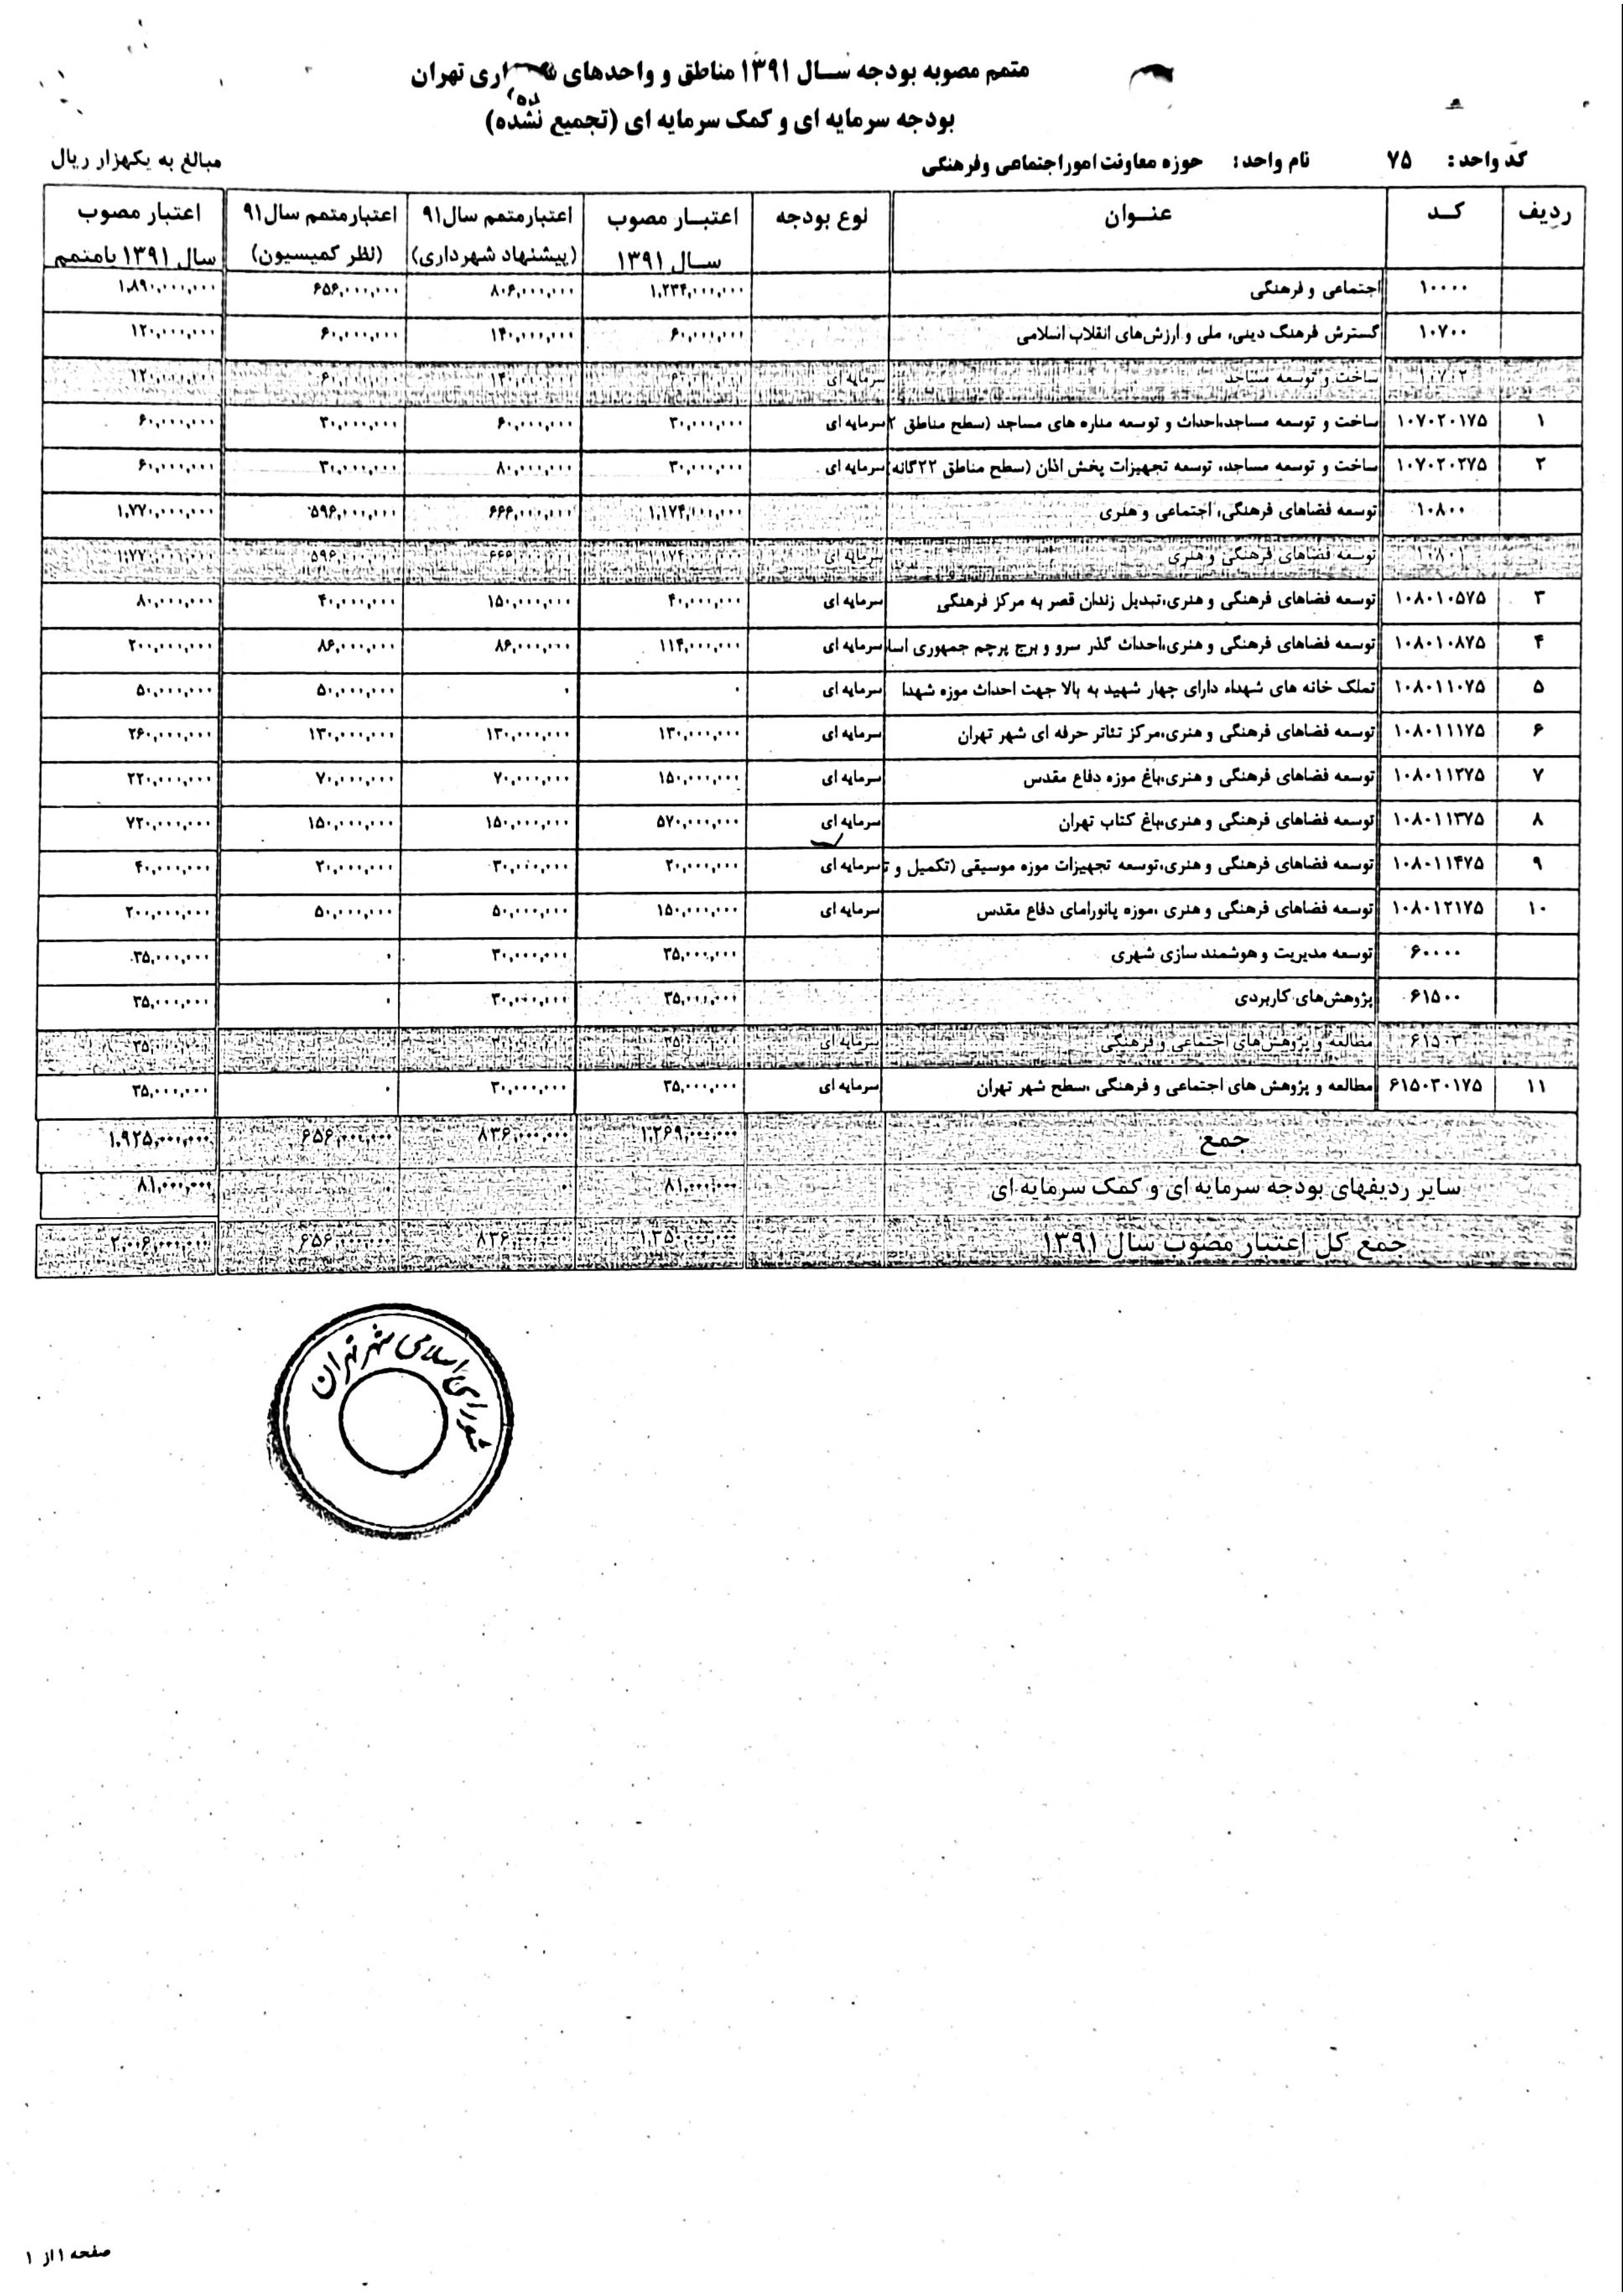 متمم مصوبه بودجه سال ۱۳۹۱ مناطق و واحدهای تهران
بودجه سرمایه ای و کمک سرمایه ای (تجمیع نشده)
کد واحد: ۷۵ نام واحد: حوزه معاونت اموراجتماعی وفرهنگی مبالغ به یکهزار ریال
ردیف کد عنوان نوع بودجه اعتبار مصوب سال ۱۳۹۱ اعتبارمتمم سال۹۱ (پیشنهاد شهرداری) اعتبارمتمم سال۹۱ (نظر کمیسیون) اعتبار مصوب سال ۱۳۹۱ بامتمم
۱۰۰۰۰ اجتماعی و فرهنگی ۱,۲۳۴,۰۰۰,۰۰۰ ۸۰۶,۰۰۰,۰۰۰ ۶۵۶,۰۰۰,۰۰۰ ۱,۸۹۰,۰۰۰,۰۰۰
۱۰۷۰۰ گسترش فرهنگ دینی، ملی و ارزش‌های انقلاب اسلامی ۶۰,۰۰۰,۰۰۰ ۱۴۰,۰۰۰,۰۰۰ ۶۰,۰۰۰,۰۰۰ ۱۲۰,۰۰۰,۰۰۰
۱۰۷۰۲ ساخت و توسعه مساجد سرمایه ای ۶۰,۰۰۰,۰۰۰ ۱۴۰,۰۰۰,۰۰۰ ۶۰,۰۰۰,۰۰۰ ۱۲۰,۰۰۰,۰۰۰
۱ ۱۰۷۰۲۰۱۷۵ ساخت و توسعه مساجد،احداث و توسعه مناره های مساجد (سطح مناطق ۲ سرمایه ای ۳۰,۰۰۰,۰۰۰ ۶۰,۰۰۰,۰۰۰ ۳۰,۰۰۰,۰۰۰ ۶۰,۰۰۰,۰۰۰
۲ ۱۰۷۰۲۰۲۷۵ ساخت و توسعه مساجد، توسعه تجهیزات پخش اذان (سطح مناطق ۲۲گانه) سرمایه ای ۳۰,۰۰۰,۰۰۰ ۸۰,۰۰۰,۰۰۰ ۳۰,۰۰۰,۰۰۰ ۶۰,۰۰۰,۰۰۰
۱۰۸۰۰ توسعه فضاهای فرهنگی، اجتماعی و هنری ۱,۱۷۴,۰۰۰,۰۰۰ ۶۶۶,۰۰۰,۰۰۰ ۵۹۶,۰۰۰,۰۰۰ ۱,۷۷۰,۰۰۰,۰۰۰
۱۰۸۰۱ توسعه فضاهای فرهنگی و هنری سرمایه ای ۱,۱۷۴,۰۰۰,۰۰۰ ۶۶۶,۰۰۰,۰۰۰ ۵۹۶,۰۰۰,۰۰۰ ۱,۷۷۰,۰۰۰,۰۰۰
۳ ۱۰۸۰۱۰۵۷۵ توسعه فضاهای فرهنگی و هنری،تبدیل زندان قصر به مرکز فرهنگی سرمایه ای ۴۰,۰۰۰,۰۰۰ ۱۵۰,۰۰۰,۰۰۰ ۴۰,۰۰۰,۰۰۰ ۸۰,۰۰۰,۰۰۰
۴ ۱۰۸۰۱۰۸۷۵ توسعه فضاهای فرهنگی و هنری،احداث گذر سرو و برج پرچم جمهوری اسلا سرمایه ای ۱۱۴,۰۰۰,۰۰۰ ۸۶,۰۰۰,۰۰۰ ۸۶,۰۰۰,۰۰۰ ۲۰۰,۰۰۰,۰۰۰
۵ ۱۰۸۰۱۱۰۷۵ تملک خانه های شهداء دارای چهار شهید به بالا جهت احداث موزه شهدا سرمایه ای ۰ ۰ ۵۰,۰۰۰,۰۰۰ ۵۰,۰۰۰,۰۰۰
۶ ۱۰۸۰۱۱۱۷۵ توسعه فضاهای فرهنگی و هنری،مرکز تئاتر حرفه ای شهر تهران سرمایه ای ۱۳۰,۰۰۰,۰۰۰ ۱۳۰,۰۰۰,۰۰۰ ۱۳۰,۰۰۰,۰۰۰ ۲۶۰,۰۰۰,۰۰۰
۷ ۱۰۸۰۱۱۲۷۵ توسعه فضاهای فرهنگی و هنری،باغ موزه دفاع مقدس سرمایه ای ۱۵۰,۰۰۰,۰۰۰ ۷۰,۰۰۰,۰۰۰ ۷۰,۰۰۰,۰۰۰ ۲۲۰,۰۰۰,۰۰۰
۸ ۱۰۸۰۱۱۳۷۵ توسعه فضاهای فرهنگی و هنری،باغ کتاب تهران سرمایه ای ۵۷۰,۰۰۰,۰۰۰ ۱۵۰,۰۰۰,۰۰۰ ۱۵۰,۰۰۰,۰۰۰ ۷۲۰,۰۰۰,۰۰۰
۹ ۱۰۸۰۱۱۴۷۵ توسعه فضاهای فرهنگی و هنری،توسعه تجهیزات موزه موسیقی (تکمیل و ت سرمایه ای ۲۰,۰۰۰,۰۰۰ ۳۰,۰۰۰,۰۰۰ ۲۰,۰۰۰,۰۰۰ ۴۰,۰۰۰,۰۰۰
۱۰ ۱۰۸۰۱۲۱۷۵ توسعه فضاهای فرهنگی و هنری ،موزه پانورامای دفاع مقدس سرمایه ای ۱۵۰,۰۰۰,۰۰۰ ۵۰,۰۰۰,۰۰۰ ۵۰,۰۰۰,۰۰۰ ۲۰۰,۰۰۰,۰۰۰
۶۰۰۰۰ توسعه مدیریت و هوشمند سازی شهری ۳۵,۰۰۰,۰۰۰ ۳۰,۰۰۰,۰۰۰ ۰ ۳۵,۰۰۰,۰۰۰
۶۱۵۰۰ پژوهش‌های کاربردی ۳۵,۰۰۰,۰۰۰ ۳۰,۰۰۰,۰۰۰ ۰ ۳۵,۰۰۰,۰۰۰
۶۱۵۰۳ مطالعه و پژوهش‌های اجتماعی و فرهنگی سرمایه ای
۱۱ ۶۱۵۰۳۰۱۷۵ مطالعه و پژوهش های اجتماعی و فرهنگی ،سطح شهر تهران سرمایه ای ۳۵,۰۰۰,۰۰۰ ۳۰,۰۰۰,۰۰۰ ۰ ۳۵,۰۰۰,۰۰۰
جمع ۱,۲۶۹,۰۰۰,۰۰۰ ۸۳۶,۰۰۰,۰۰۰ ۶۵۶,۰۰۰,۰۰۰ ۱,۹۲۵,۰۰۰,۰۰۰
سایر ردیفهای بودجه سرمایه ای و کمک سرمایه ای ۸۱,۰۰۰,۰۰۰ ۰ ۰ ۸۱,۰۰۰,۰۰۰
جمع کل اعتبار مصوب سال ۱۳۹۱ ۱,۳۵۰,۰۰۰,۰۰۰ ۸۳۶,۰۰۰,۰۰۰ ۶۵۶,۰۰۰,۰۰۰ ۲,۰۰۶,۰۰۰,۰۰۰
شورای اسلامی شهر تهران
صفحه ۱ از ۱